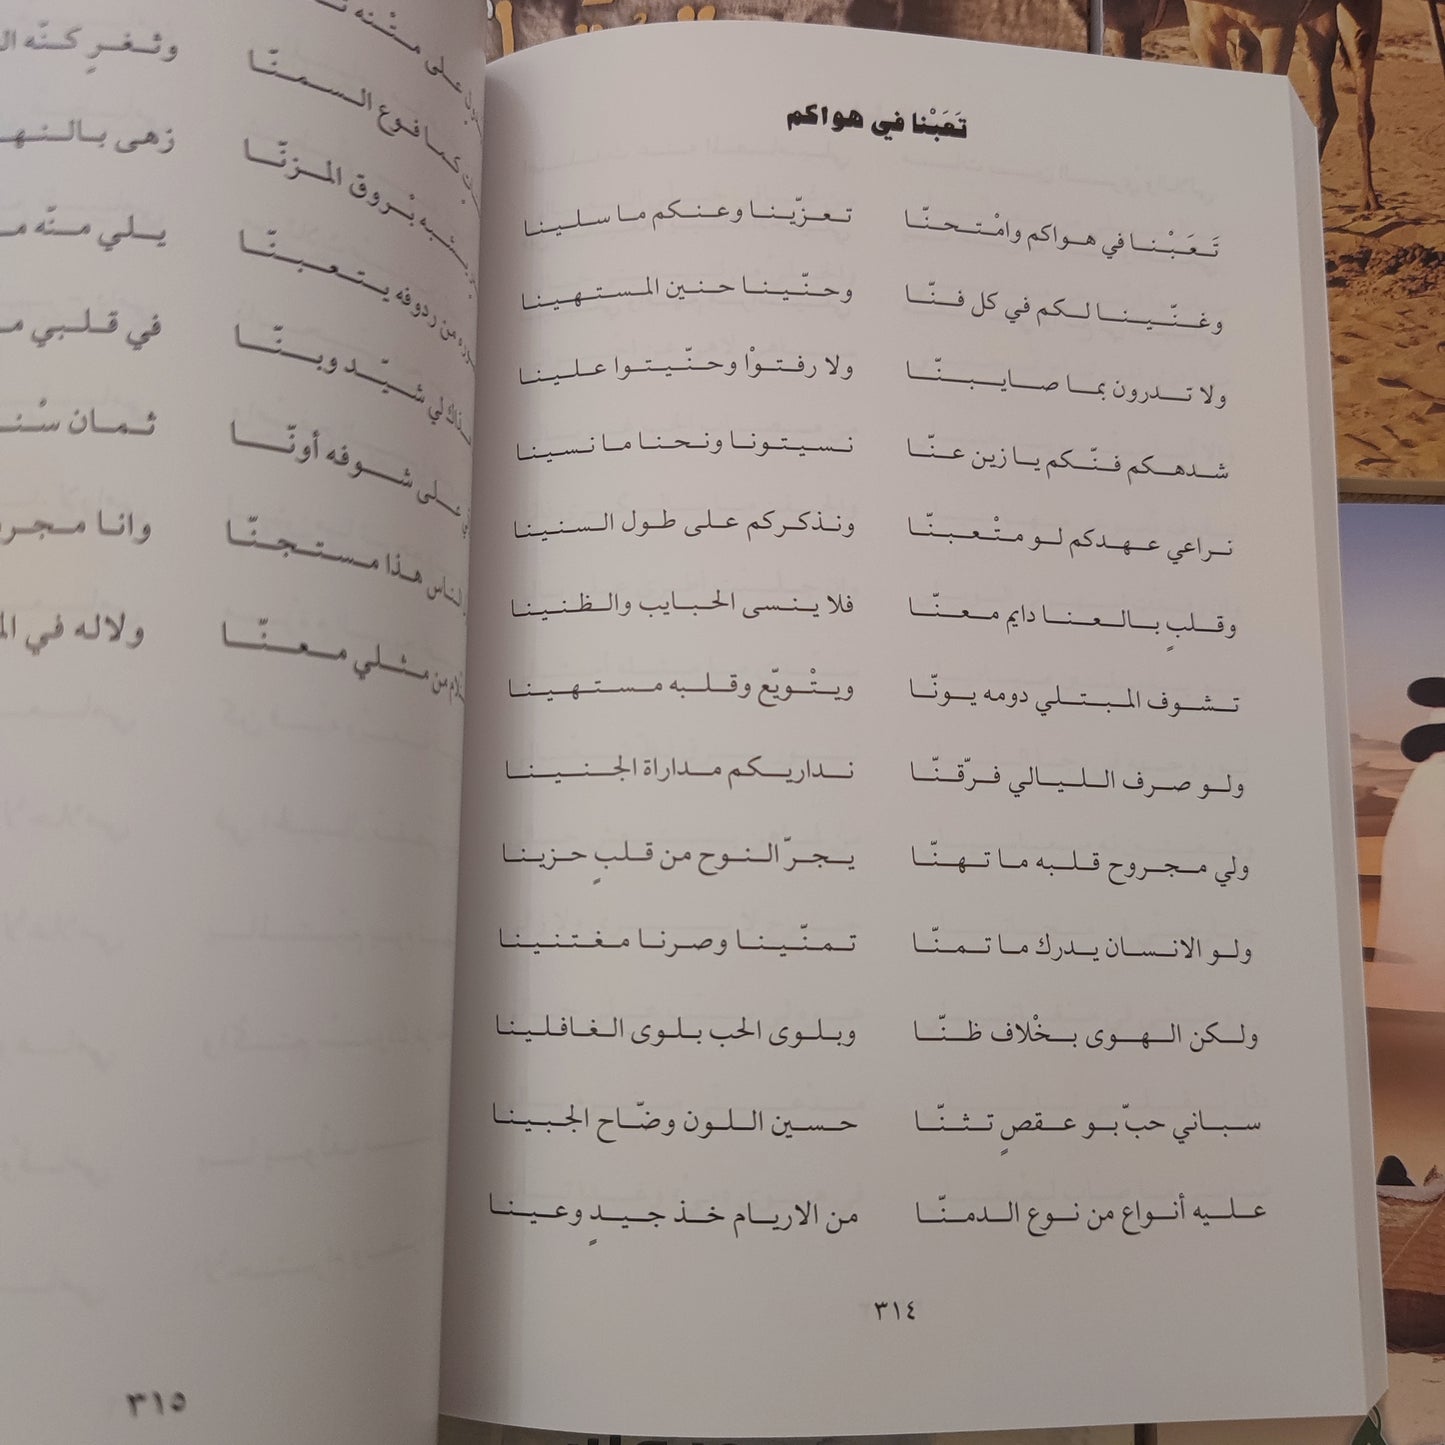 تَعَبْنا في هواكم
تَعَبْنا في هواكم وامْتحنّا تعزّينا وعنكم ما سلينا
وغنّينا لكم في كل فنّا وحنّينا حنين المستهينا
ولا تدرون بما صايبنّا ولا رفتوْا وحنّيتوا علينا
شدهكم فنّكم يا زين عنّا نسيتونا ونحنا ما نسينا
نراعي عهدكم لو متْعبنّا ونذكركم على طول السنينا
وقلبٍ بالعنا دايم معنّا فلا ينسى الحبايب والظنينا
تشوف المبتلي دومه يونّا ويتْويّع وقلبه مستهينا
ولو صرف الليالي فرّقنّا نداريكم مداراة الجنينا
ولي مجروح قلبه ما تهنّا يجرّ النوح من قلبٍ حزينا
ولو الانسان يدرك ما تمنّا تمنّينا وصرنا مغتنينا
ولكن الهوى بخْلاف ظنّا وبلوى الحب بلوى الغافلينا
سباني حبّ بو عقصٍ تثنّا حسين اللون وضّاح الجبينا
عليه أنواع من نوع الدمنّا من الاريام خذ جيدٍ وعينا
٣١٤
على متْنه
وثغرٍ كنّه
كما فوع السمنّا
زهى
بْروق المزنّا
يلي منّه
من ردوفه يتعبنّا
في قلبي
لي شيّد وبنّا
ثمان
على شوفه أونّا
وانا
الناس هذا مستجنّا
ولاله في
من مثلي معنّا
٣١٥